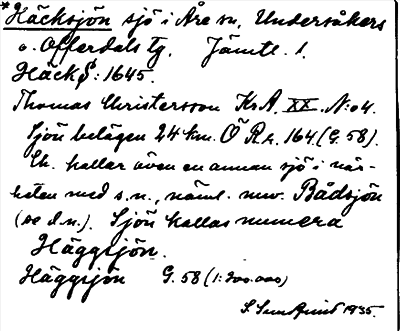 *Häcksjön sjö i Åre sn, Undersåkers
o. Offerdals tg, Jämtl. l.
Häck§: 1645.
Thomas Christersson K.A. XX. N:o 4.
Sjön belägen 24 km. Ö R.r. 164. (G. 58).
Ch. kallar även en annan sjö i när-
heten med s. n., näml. nuv. Bådsjön
(se d. n.). Sjön kallas numera
Häggsjön.
Häggsjön G. 58 (1:200.000)
1935.